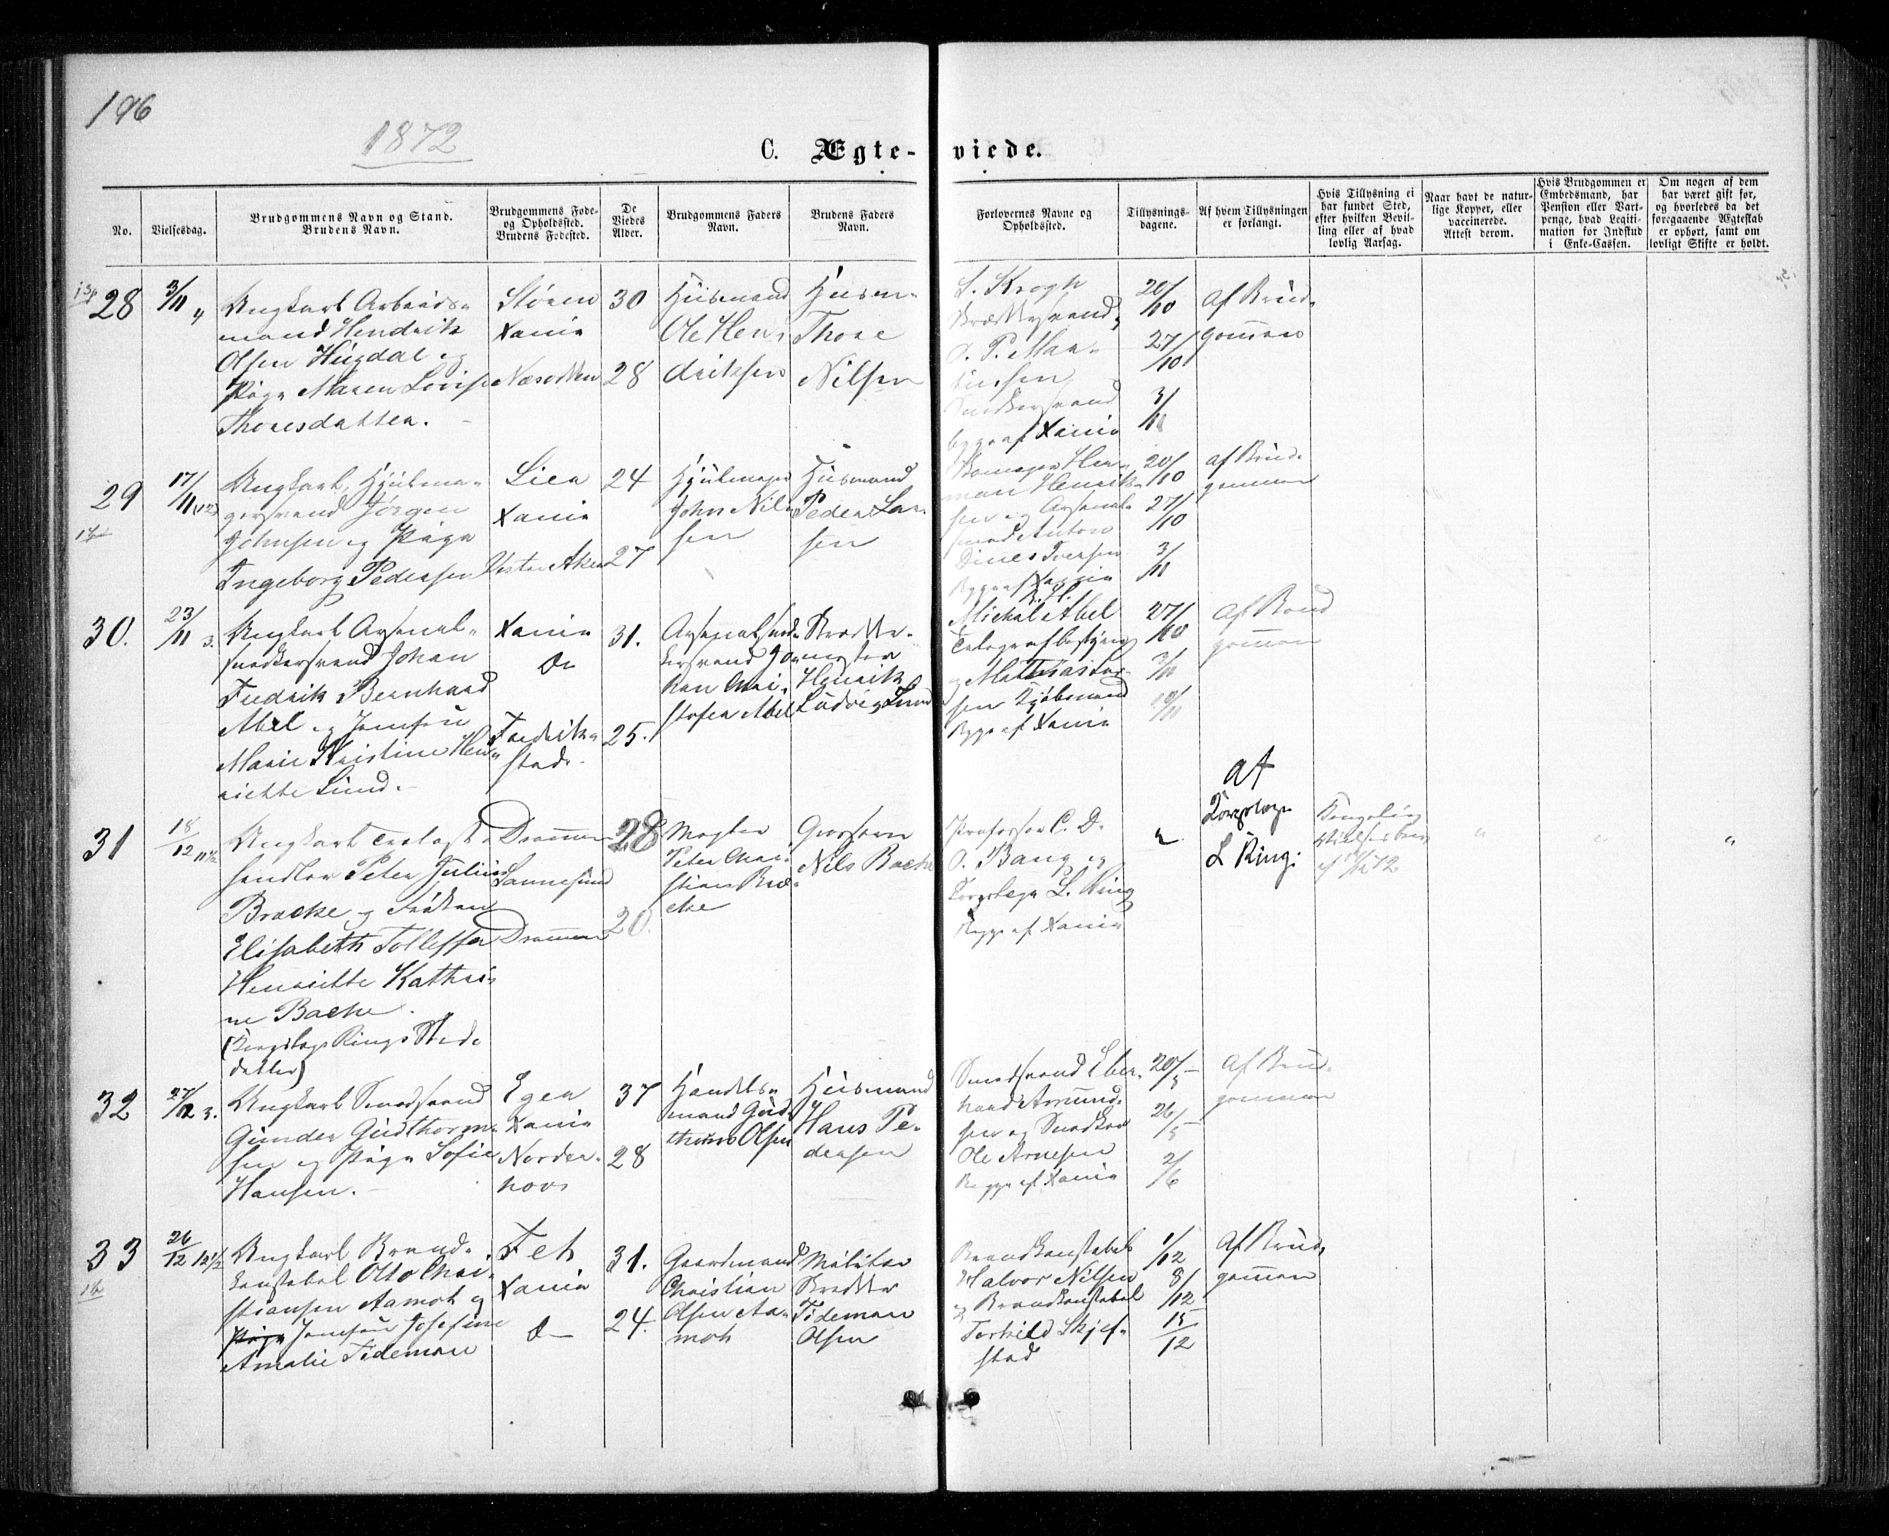 196
1872
C. Ægte-viede.
No.
Vielsesdag.
Brudgommens Navn og Stand.
Brudens Navn.
Brudgommens Føde-
og Opholdssted.
Brudens Fødested.
De
Viedes
Alder.
Brudgommens Faders
Navn.
Brudens Faders
Navn.
Forlovernes Navne og
Opholdssted.
Tillysnings-
dagene.
Af hvem Tillysningen
er forlangt.
Hvis Tillysning ei
har fundet Sted,
efter hvilken Bevil-
ling eller af hvad
lovlig Aarsag.
Naar havt de natur-
lige Kopper, eller
vaccinerede.
Attest derom.
Hvis Brudgommen er
Embedsmand, har
Pension eller Vart-
penge, hvad Legiti-
mation for Indskud
i Enke-Cassen.
Om nogen af dem
har været gift før,
og hvorledes da det
foregaaende Ægteskab
er ophørt, samt om
lovligt Skifte er holdt.
28
3/11
Ungkarl Arbeids-
mand Hendrik
Olsen Hugdal og
Pige Maren Lovise
Thoresdatter.
Støren
Xania
Næsodden
30
28
Husmand
Ole Hen-
driksen
Husm.
Thore
Nilsen
S. Krogh
Skræddersvend
O. P. Mar-
tinsen
Snedkersvend
begge af Xania
20/10
27/10
3/11
Af Brud-
gommen
29
17/11
Ungkarl Hjulma-
gersvend Jørgen
Johnsen og Pige
Ingeborg Pedersen
Lier
Xania
Vestre Aker
24
27
Hjulmager
John Nil-
sen
Husmand
Peder Lar-
sen
Her-
man Henrik-
sen og Arsenal-
smed Anton
Dines Iversen
Begge af Xania
20/10
27/10
3/11
af Brud-
gommen
30.
23/11 3.
Ungkarl Arsenal-
snedkersvend Johan
Fredrik Bernhard
Abel og Jomfru
Marie Kristine Hen-
riette Lund.
Xania
do
Fredrik-
stad.
31.
25.
Arsenalsned-
kersvend Jo-
han Chri-
stofer Abel
Skrædder-
mester
Henrik
Ludvig Lund
Michal Abel
Telegrafbestyrer
og Mathias Lar-
sen Kjøbmand
Begge af Xania
27/10
3/11
10/11
Af Brud
gommen
31
18/12
Ungkarl Trælast-
handler Peter Julius
Bracke og Frøken
Elisabeth Tollefsen
Henriette Kathri-
ne Backe.
(Korpslæge Rings Sted-
datter)
Drammen
Sannesund
Drammen
28
20.
Mægler
Peter Chri-
stian Bra-
cke
Grosserer
Nils Backe
Professor C. D.
O. Bang og
Korpslæge L. Ring
Begge af Xania
"
af
Korpslæge
L Ring:
Kongelig
"
"
"
32
27/12 3.
Ungkarl Smedsvend
Gunder Gudthorm-
sen og Pige Sofie
Hansen.
Eger
Xania
Norder-
hov
37
28
Handels-
mand Gud-
thorm Olsen
Husmand
Hans Pe-
dersen
Smedsvend Eber-
hard Amund-
sen og Snedker
Ole Arnesen
Begge af Xania
20/5
26/5
2/6
Af Brud-
gommen
33
26/12 12 1/2
Ungkarl Brand-
konstabel Otto Chri-
stiansen Aamot og
Pige Jomfru Josefine
Amalie Tideman
Fet
Xania
do
31.
24.
Gaardmand
Christian
Olsen Aa-
mot
Militær
Skrædder
Tideman
Olsen
Brandkonstabel
Halvor Nilsen
og Brandkonstabel
Torkild Skjef-
stad
1/12
8/12
15/12
Af Brud-
gommen